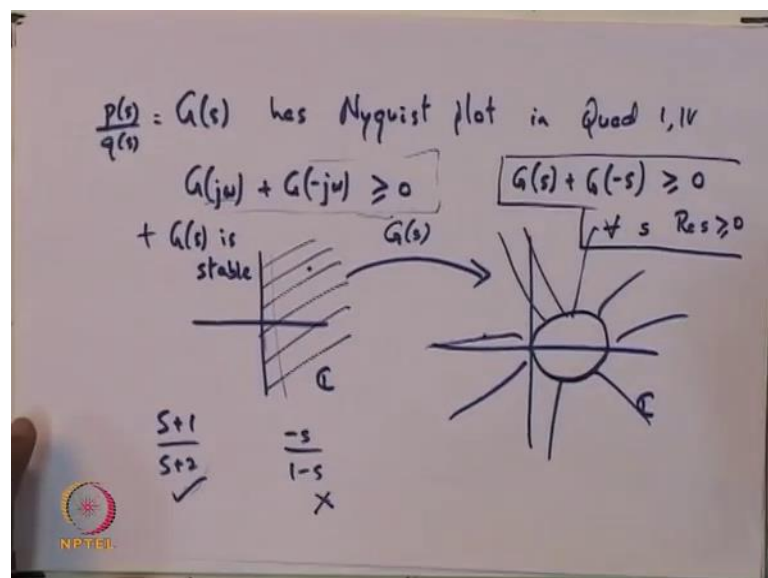 p(s)/q(s) = G(s) has Nyquist plot in Quad I, IV
G(jω) + G(-jω) ≥ 0
G(s) + G(-s) ≥ 0
+ G(s) is stable
∀ s Re s ≥ 0
G(s)
ℂ
ℂ
s+1/s+2
-s/1-s
✓
×
NPTEL